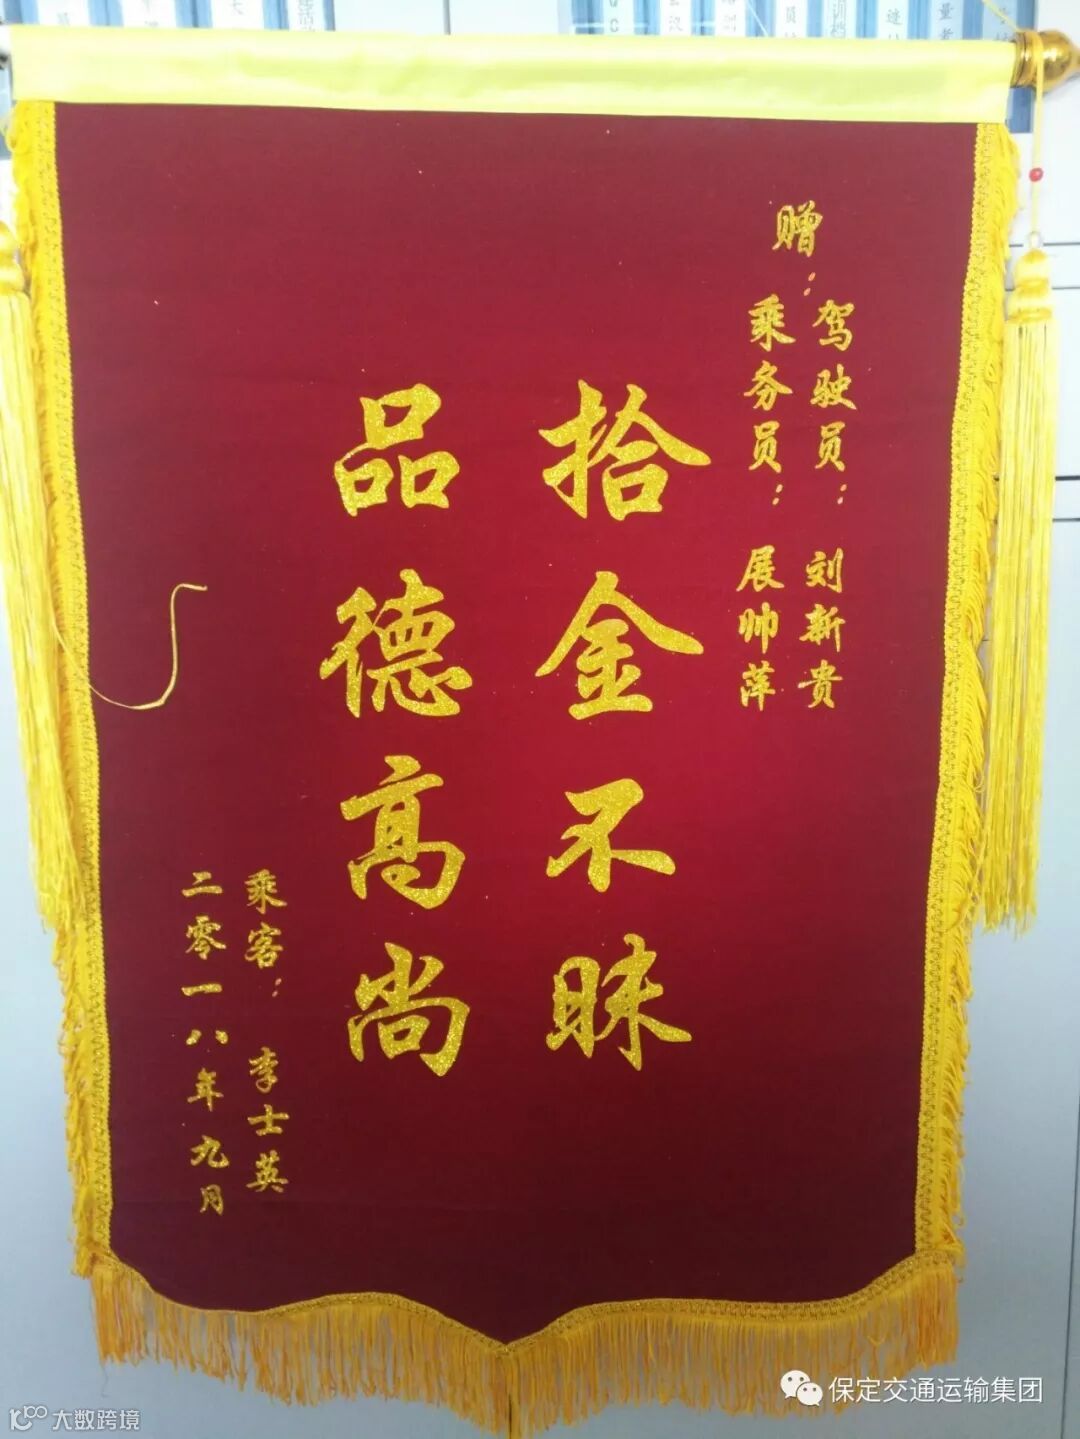 赠：
驾驶员：刘新贵
乘务员：展帅萍
拾金不昧
品德高尚
乘客：李士英
二零一八年九月
保定交通运输集团
大数跨境